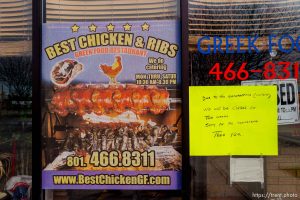 BEST CHICKEN & RIBS
GREEK FOOD RESTAURANT
We do
catering
MON THRU SATUR
10:30 AM-8:30 PM
801. 466.8311
www.BestChickenGF.com
GREEK FO
466-831
We will be closed
Two weeks
Sorry for the
Thank you
https://trent.photo